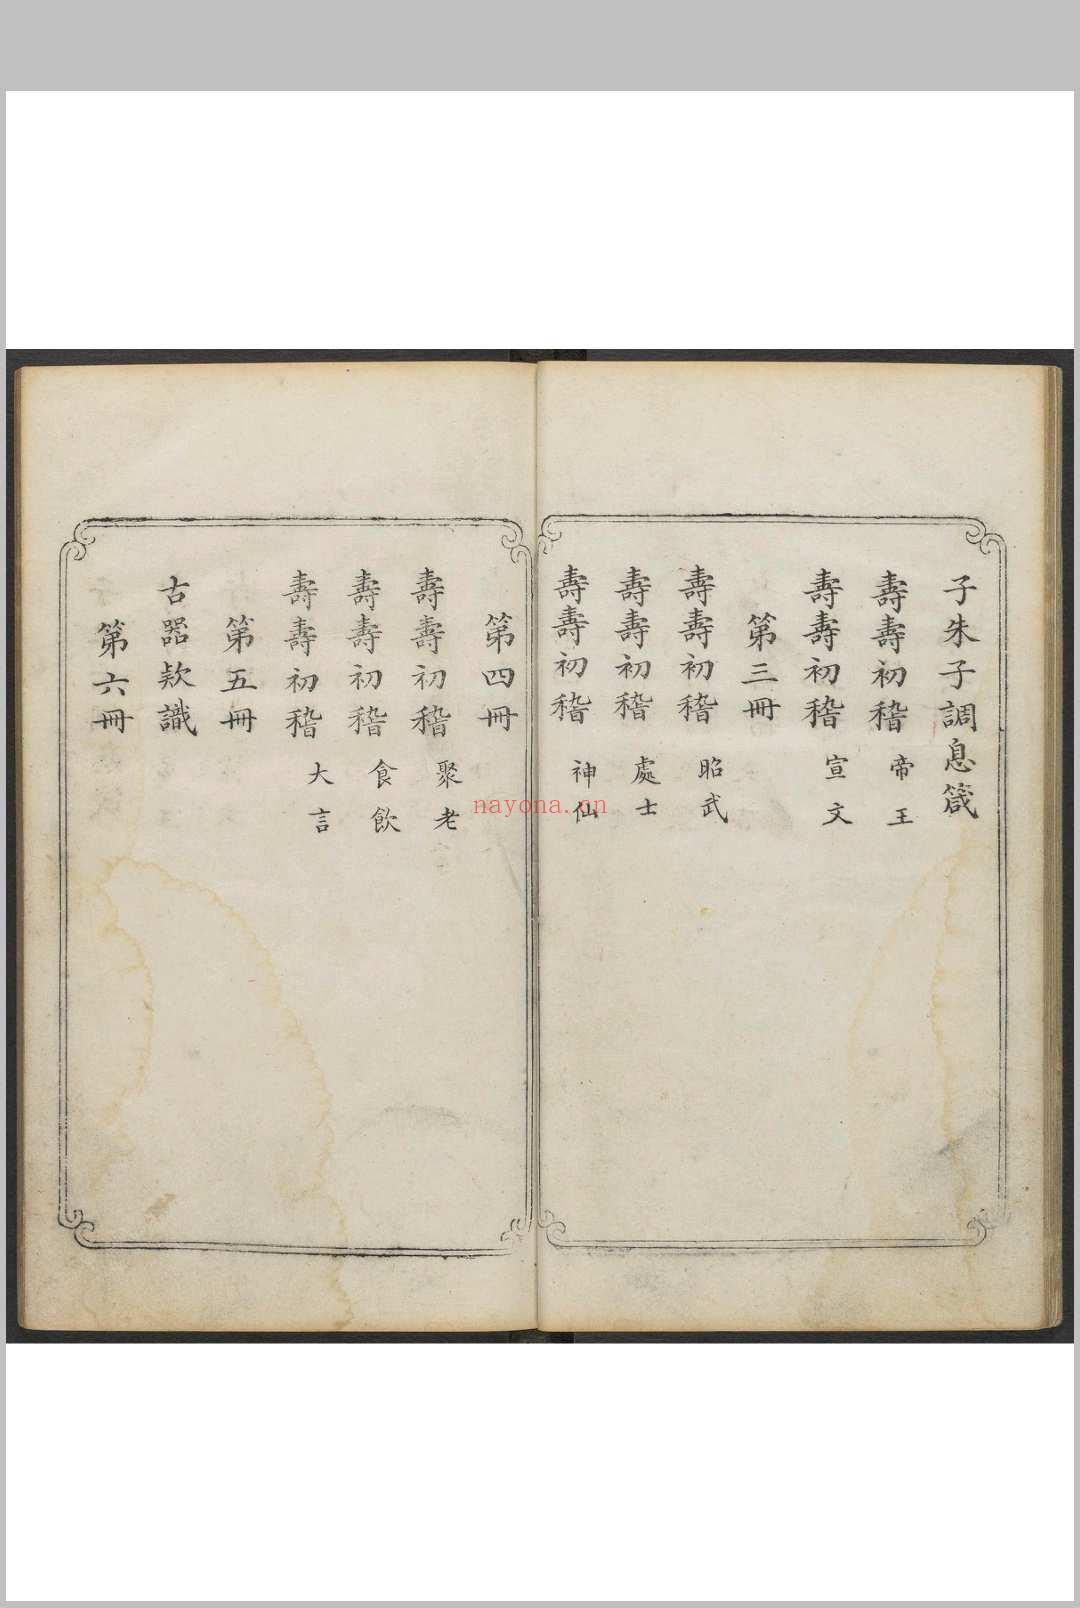 子朱子調息箴
壽壽初稽 帝王
壽壽初稽 宣文
第三冊
壽壽初稽 昭武
壽壽初稽 處士
壽壽初稽 神仙
第四冊
壽壽初稽 聚老
壽壽初稽 食飲
壽壽初稽 大言
第五冊
古器欵識
第六冊
nayona.cn